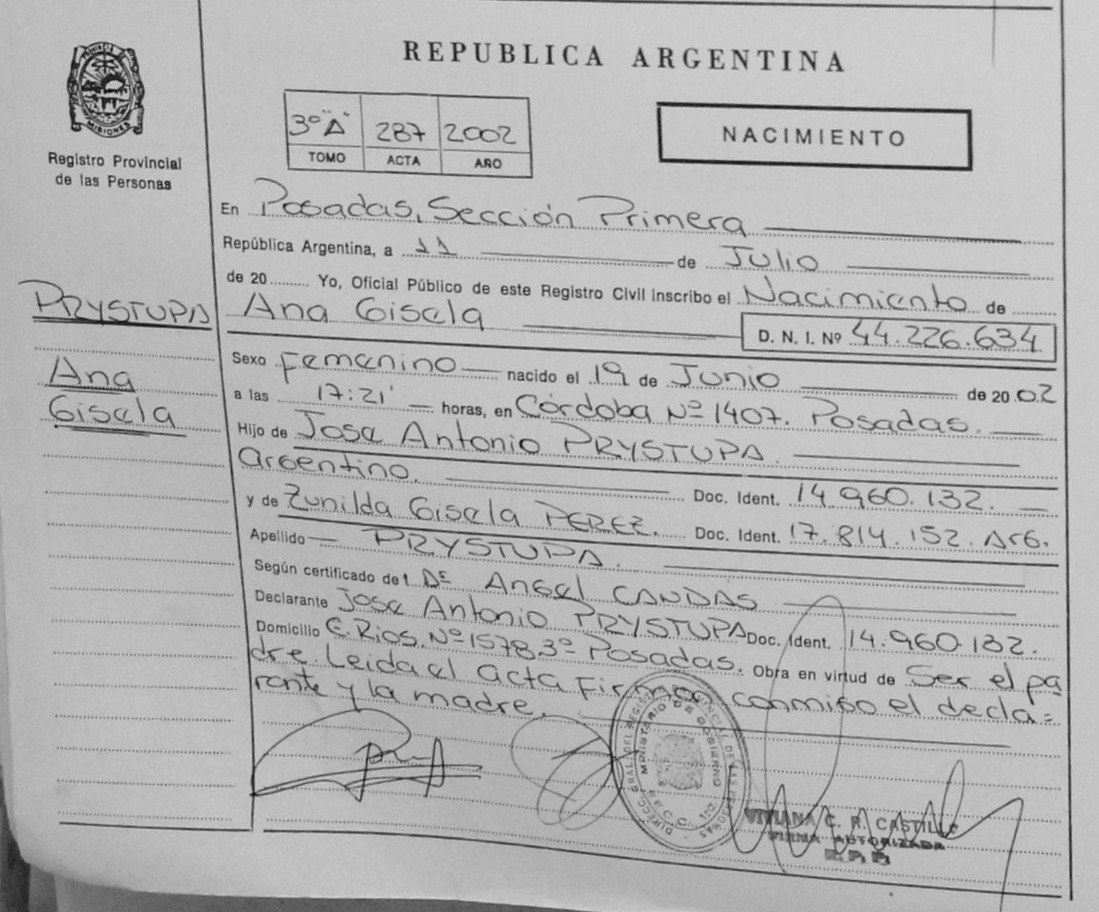 REPUBLICA ARGENTINA
MISIONES
Registro Provincial
de las Personas
3º "A" 287 2002
TOMO ACTA AÑO
NACIMIENTO
En Posadas, Sección Primera
República Argentina, a 11 de Julio
de 20 Yo, Oficial Público de este Registro Civil inscribo el Nacimiento de
PRYSTUPA
Ana Gisela
D. N. I. Nº 44.226.634
Sexo Femenino nacido el 19 de Junio de 20 02
Ana
Gisela
a las 17:21' horas, en Córdoba Nº 1407. Posadas.
Hijo de Jose Antonio PRYSTUPA.
argentino. Doc. Ident. 14.960.132.
y de Zunilda Gisela PEREZ. Doc. Ident. 17.814.152. Arg.
Apellido PRYSTUPA.
Según certificado de Angel CANDAS
Declarante Jose Antonio PRYSTUPA Doc. Ident. 14.960.132.
Domicilio E. Rios. Nº 1578.3º Posadas. Obra en virtud de Ser el pa
dre. Leida el acta Firman conmigo el decla=
rante y la madre.
MINISTERIO DE GOBIERNO
VIVIANA C. R. CASTILLO
FIRMA AUTORIZADA
R. P. P.